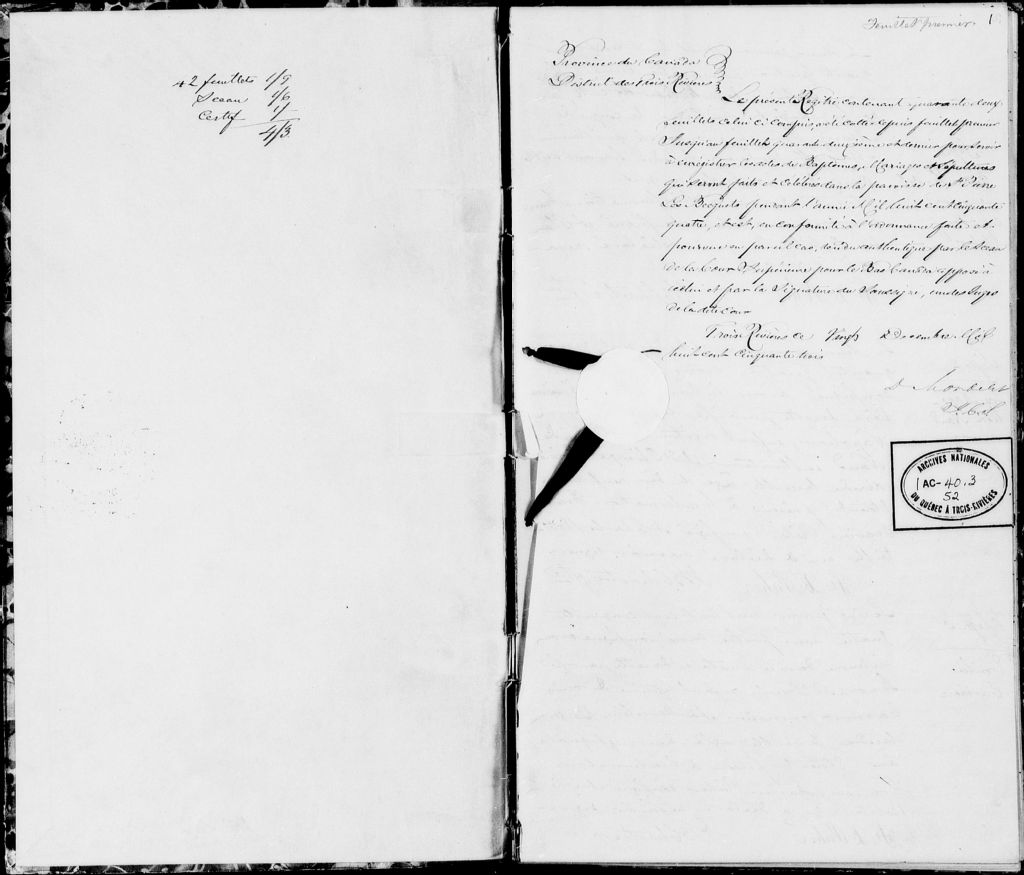 42 feuillets 1/9
Sceau 1/6
Certif 1/
4/3
Feuillet premier 1
Province du Canada
District des Trois Rivières
Le présent Registre contenant quarante deux
feuillets celui ci compris, a été cotté depuis feuillet premier
Jusqu'au feuillet quarante deuxième et dernier pour servir
à enrégistrer les actes de Baptêmes, Mariages et Sépultures
qui seront faits et célébrés dans la paroisse de St Pierre
Les Becquets pendant l'année Mil huit cent cinquante
quatre, et est, en conformité à l'ordonnance faite et
pourvue en pareil cas, rendu authentique par le Sceau
de la Cour Supérieure pour le Bas Canada apposé à
icelui et par la Signature du Soussigné, un des Juges
de la dite Cour
Trois Rivières ce Vingt Decembre Mil
huit cent cinquante trois
D Mondelet
ARCHIVES NATIONALES
AC-40.3
52
DU QUÉBEC À TROIS-RIVIÈRES